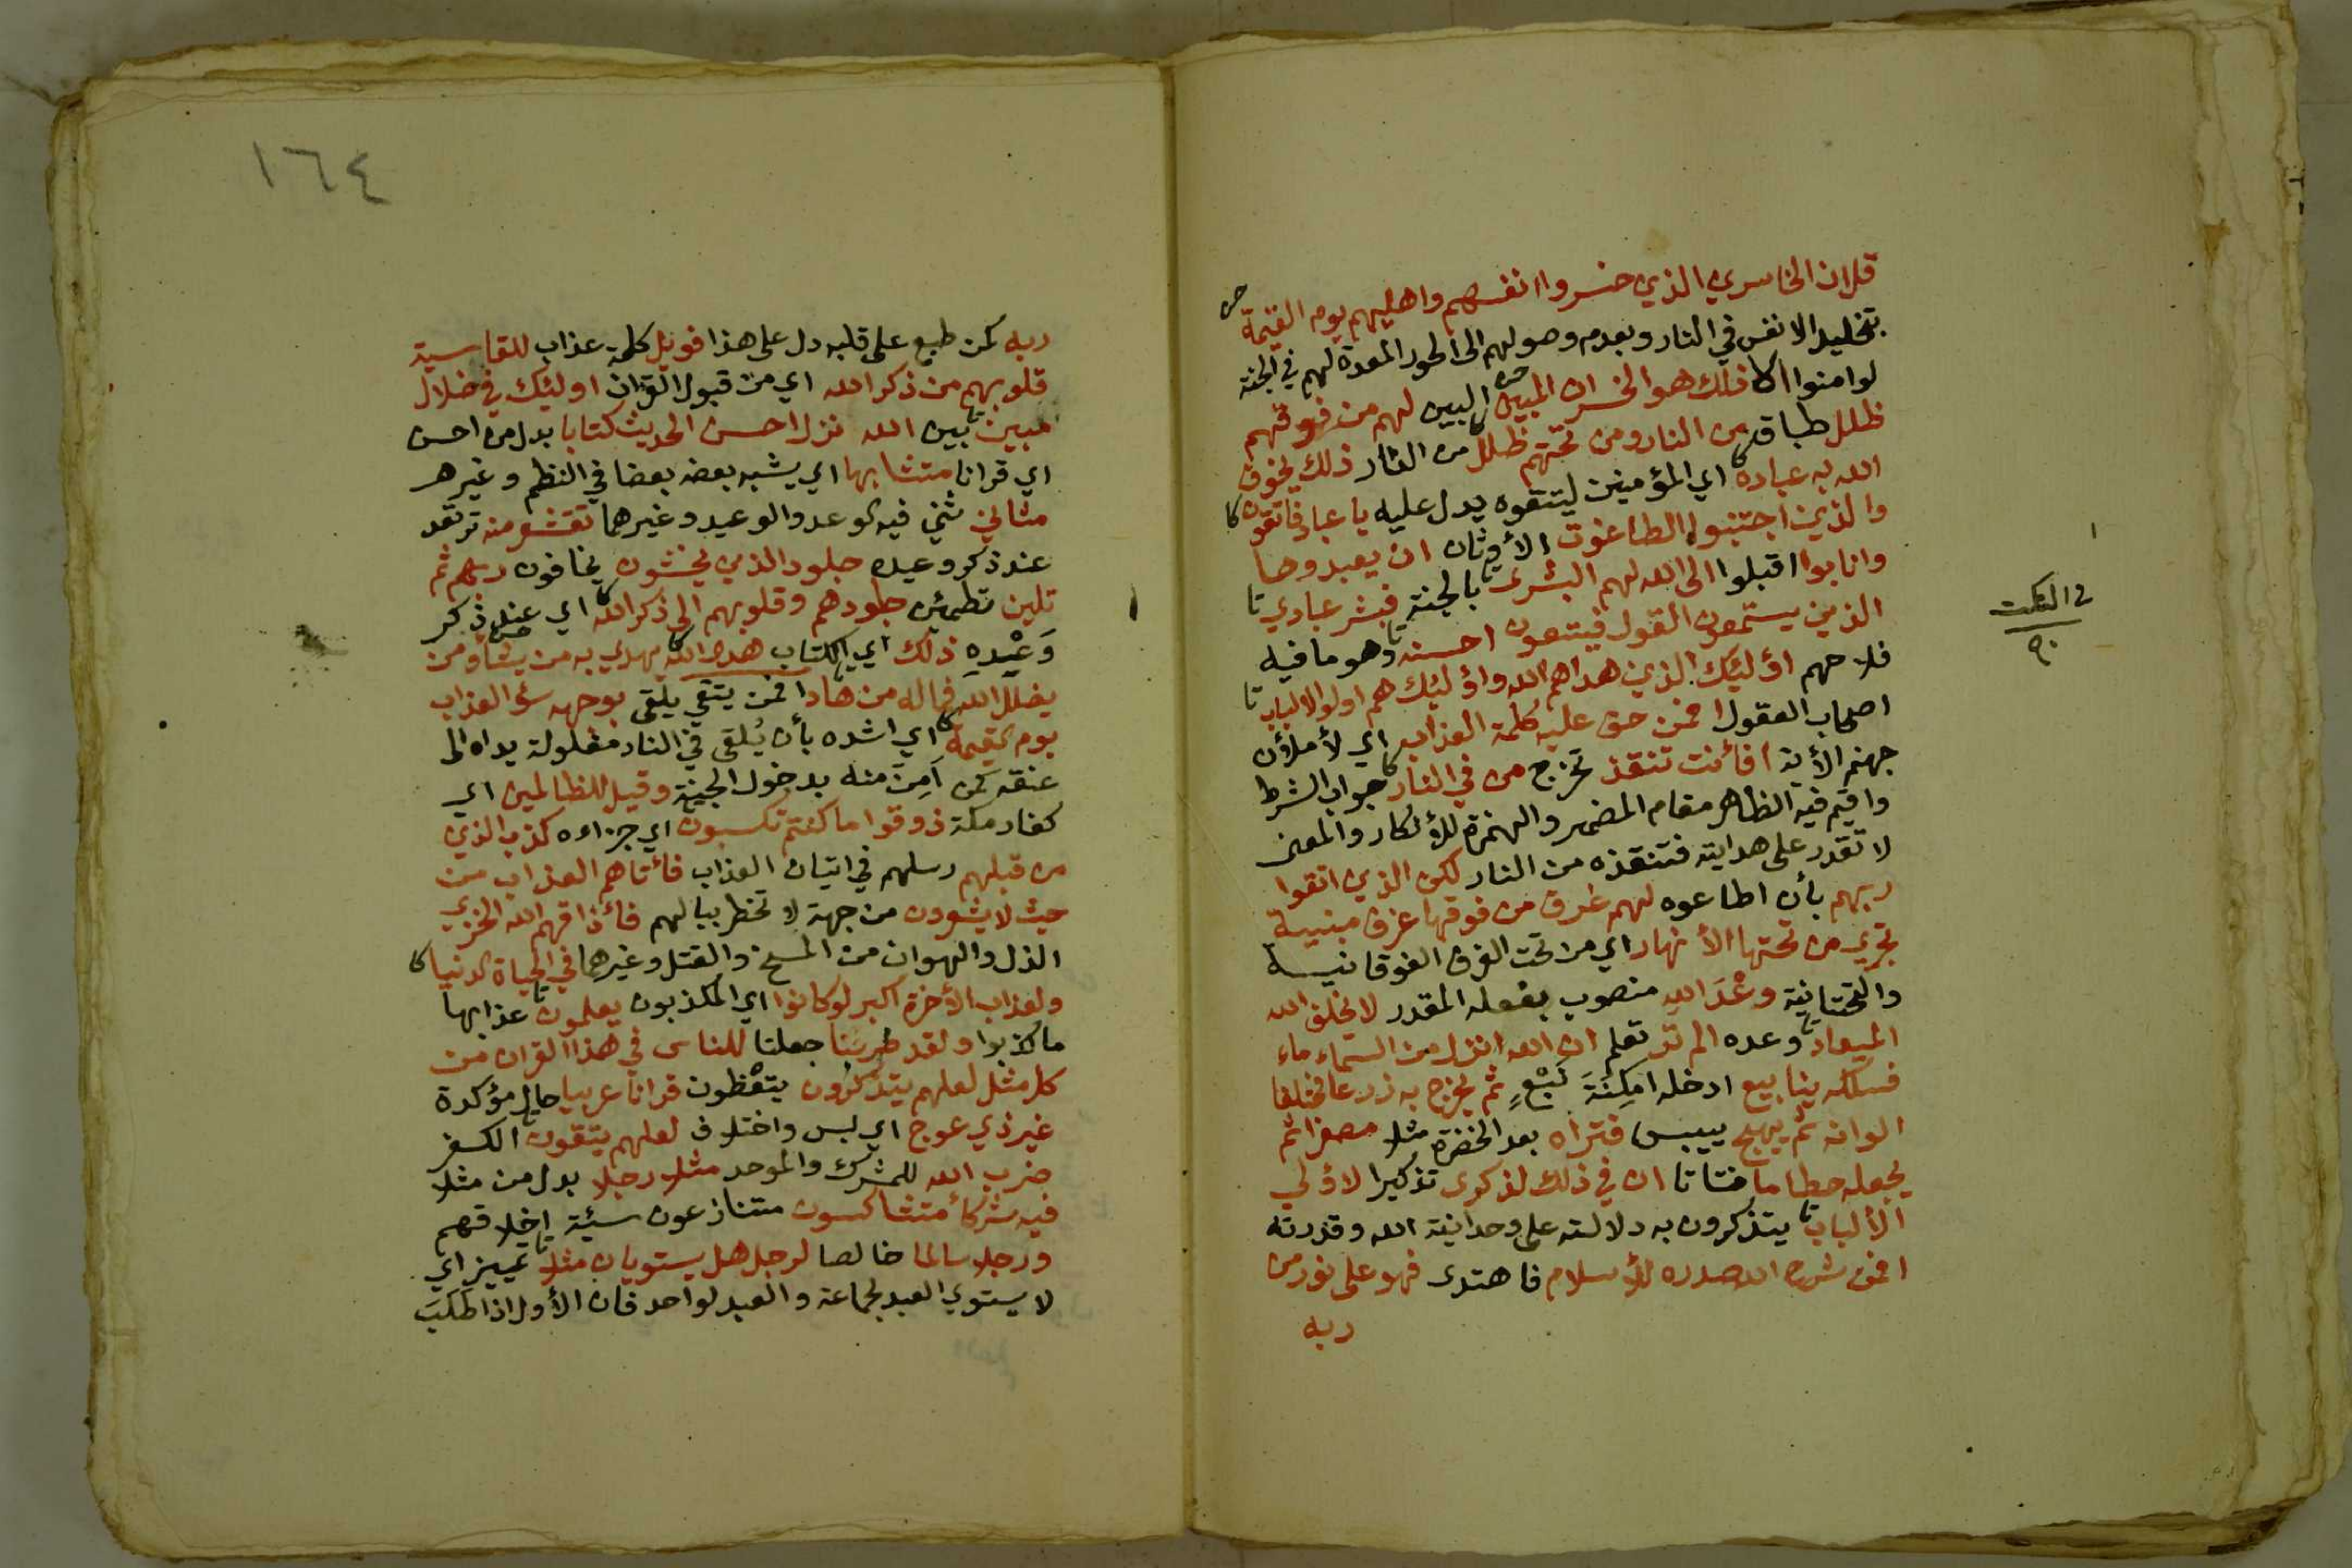 قل ان الخاسرين الذين خسروا انفسهم واهليهم يوم القيمة
بتخليد الانفس في النار وبعدم وصولهم الى الحور المعدة لهم في الجنة
لو امنوا الا ذلك هو الخسران المبين البين لهم من فوقهم
ظلل طباق من النار ومن تحتهم ظلل من النار ذلك يخوف
الله به عباده اي المؤمنين ليتقوه يدل عليه يا عباد فاتقون
والذين اجتنبوا الطاغوت الأوثان ان يعبدوها
وانابوا اقبلوا الى الله لهم البشرى بالجنة فبشر عبادي
الذين يستمعون القول فيتبعون احسنه وهو ما فيه
فلاحهم اولئك الذين هداهم الله واولئك هم اولوا الالباب
اصحاب العقول افمن حق عليه كلمة العذاب اي لأملأن
جهنم الأية افأنت تنقذ تخرج من في النار جواب الشرط
واقيم فيه الظاهر مقام المضمر والهمزة للأنكار والمعنى
لا تقدر على هدايته فتنقذه من النار لكن الذين اتقوا
ربهم بأن اطاعوه لهم غرف من فوقها غرف مبنية
تجري من تحتها الأنهار اي من تحت الغرف الفوقانية
والتحتانية وعْدَ اللهِ منصوب بفعله المقدر لا يخلف الله
الميعاد وعده الم تر تعلم ان الله انزل من السماء ماء
فسلكه ينابيع ادخله امكِنَةَ نَبْعٍ ثم يخرج به زرعا مختلفا
الوانه ثم يهيج ييبس فتراه بعد الخضرة مثلا مصفرا ثم
يجعله حطاما فتاتا ان في ذلك لذكرى تذكيرا لاولي
الألباب يتذكرون به دلالته على وحدانية الله وقدرته
افمن شرح الله صدره للأسلام فاهتدى فهو على نور من
ربه
في النكت
٩٠
١٦٤
ربه كمن طبع على قلبه دل على هذا فويل كلمة عذاب للقاسية
قلوبهم من ذكر الله اي من قبول القران اولئك في ضلال
مبين بين الله نزل احسن الحديث كتابا بدل من احسن
اي قرانا متشابها اي يشبه بعضه بعضا في النظم وغيره
مثاني ثني فيه الوعد والوعيد وغيرهما تقشعر منه ترتعد
عند ذكر وعيده جلود الذين يخشون يخافون ربهم ثم
تلين تطمئن جلودهم وقلوبهم الى ذكر الله اي عند ذكر
وَعْيدِهِ ذلك اي الكتاب هدى الله يهدي به من يشاء ومن
يضلل الله فما له من هاد افمن يتقي يلقى بوجهه سوء العذاب
يوم القيمة اي اشده بأن يُلقى في النار مغلولة يداه الى
عنقه كمن اَمِنَ منه بدخول الجنة وقيل للظالمين اي
كفار مكة ذوقوا ما كنتم تكسبون اي جزاءه كذب الذين
من قبلهم رسلهم في اتيان العذاب فأتاهم العذاب من
حيث لا يشعرون من جهة لا تخطر ببالهم فأذاقهم الله الخزي
الذل والهوان من المسخ والقتل وغيرهما في الحياة الدنيا
ولعذاب الأخرة اكبر لو كانوا اي المكذبون يعلمون عذابها
ما كذبوا ولقد ضربنا جعلنا للناس في هذا القران من
كل مثل لعلهم يتذكرون يتعظون قرانا عربيا حال مؤكدة
غير ذي عوج اي لبس واختلاف لعلهم يتقون الكفر
ضرب الله للمشرك والموحد مثلا رجلا بدل من مثلا
فيه شركاء متشاكسون متنازعون سيئة اخلاقهم
ورجلا سالما خالصا لرجل هل يستويان مثلا تمييز اي
لا يستوي العبد لجماعة والعبد لواحد فان الأول اذا طَلَبَ